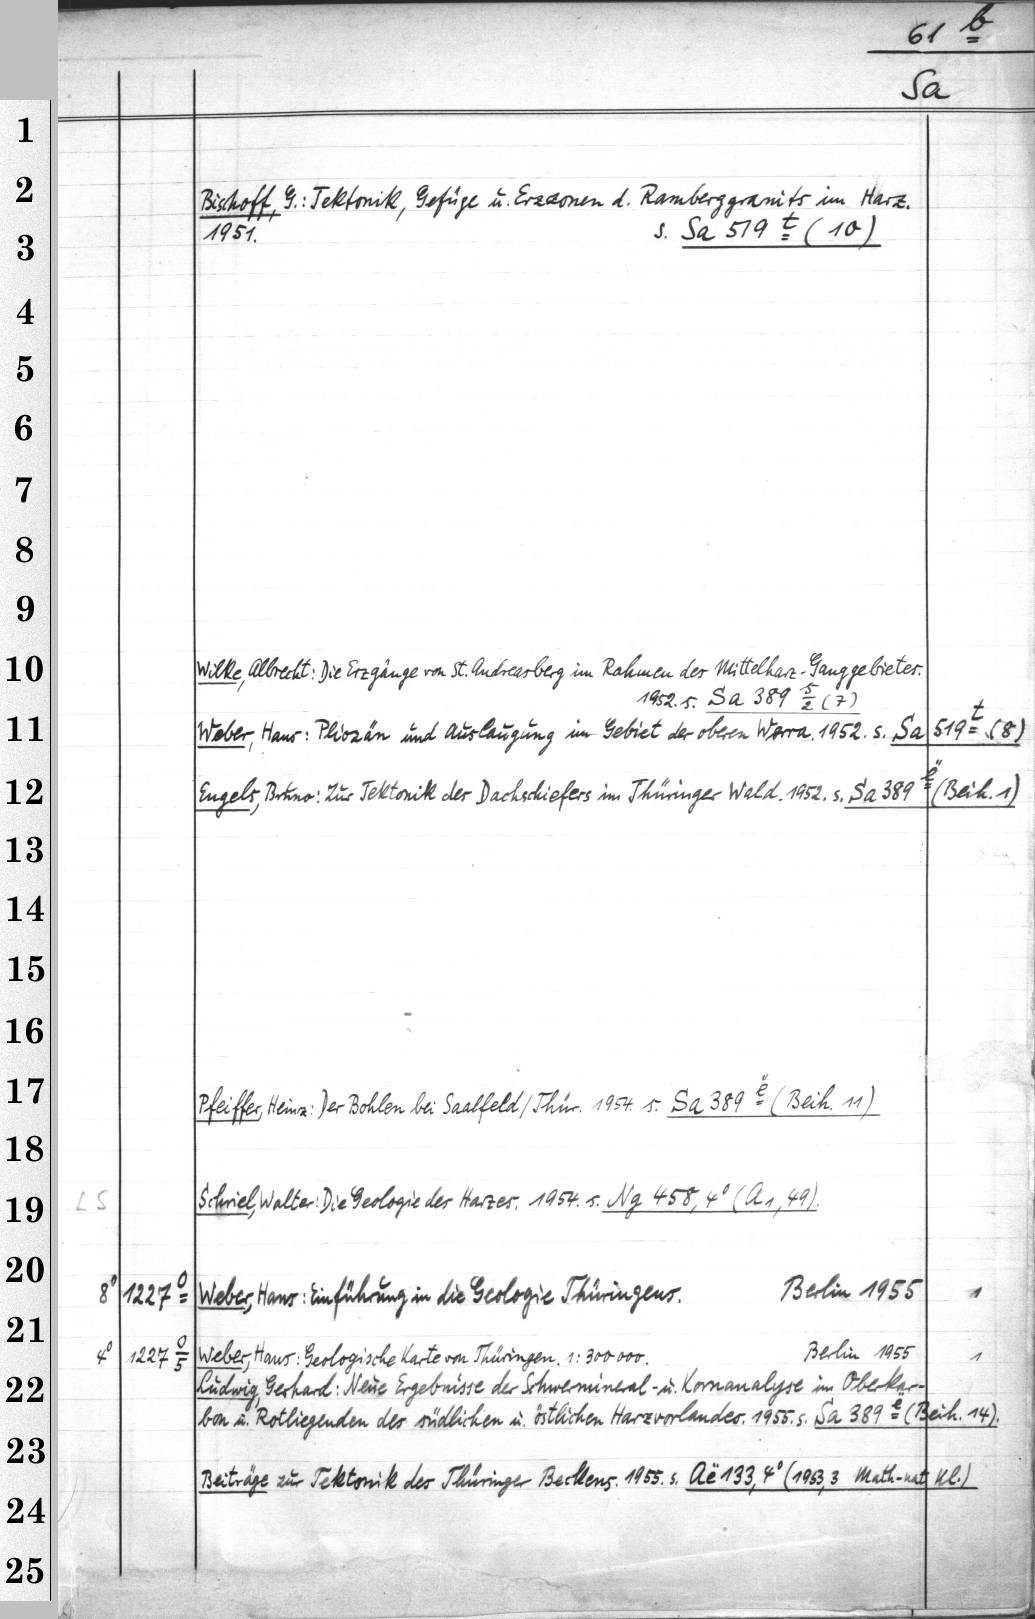 61 b
Sa
1
2
Bischoff, G.: Tektonik, Gefüge u. Erzzonen d. Ramberggranits im Harz.
1951. s. Sa 519 t (10)
3
4
5
6
7
8
9
10 Wilke, Albrecht: Die Erzgänge von St. Andreasberg im Rahmen des Mittelharz-Ganggebietes.
1952. s. Sa 389 5/2 (7)
11 Weber, Hans: Pliozän und Auslaugung im Gebiet der oberen Werra. 1952. s. Sa 519 t (8)
12 Engels, Bruno: Zur Tektonik des Dachschiefers im Thüringer Wald. 1952. s. Sa 389 ë (Beih. 1)
13
14
15
16
17 Pfeiffer, Heinz: Der Bohlen bei Saalfeld/Thür. 1954. s. Sa 389 ë (Beih. 11)
18
19 LS Schriel, Walter: Die Geologie des Harzes. 1954. s. Ng 458, 4° (A 1, 49).
20 8° 1227 o Weber, Hans: Einführung in die Geologie Thüringens. Berlin 1955 1
21 4° 1227 o/5 Weber, Hans: Geologische Karte von Thüringen. 1:300000. Berlin 1955 1
22 Ludwig, Gerhard: Neue Ergebnisse der Schwermineral- u. Kornanalyse im Oberkar-
bon u. Rotliegenden des südlichen u. östlichen Harzvorlandes. 1955. s. Sa 389 ë (Beih. 14).
23 Beiträge zur Tektonik des Thüringer Beckens. 1955. s. Aë 133, 4° (1953, 3 Math-nat Kl.)
24
25